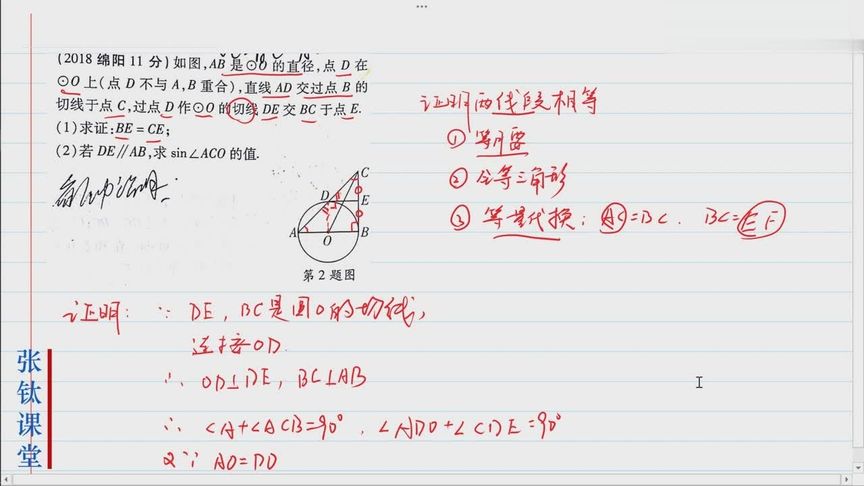 (2018 绵阳 11 分)如图,AB 是⊙O 的直径,点 D 在
⊙O 上(点 D 不与 A,B 重合),直线 AD 交过点 B 的
切线于点 C,过点 D 作⊙O 的切线 DE 交 BC 于点 E.
(1)求证:BE=CE;
(2)若 DE∥AB,求 sin∠ACO 的值.
C
D
E
A
O
B
第 2 题图
证明两线段相等
① 等腰
② 全等三角形
③ 等量代换: AC=BC. BC=EF
证明: ∵ DE, BC是圆O的切线,
连接OD
∴ OD⊥DE, BC⊥AB
∴ ∠A+∠ACB=90°, ∠ADO+∠CDE=90°
又∵ AO=DO
张钛课堂